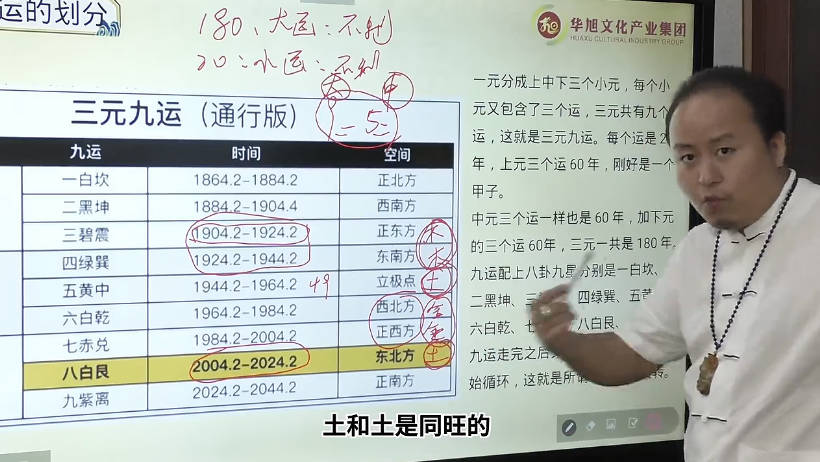 运的划分
华旭文化产业集团
HUAXU CULTURAL INDUSTRY GROUP
180、大运：不利
20：水运：不利
三元九运（通行版）
九运 时间 空间
一白坎 1864.2-1884.2 正北方
二黑坤 1884.2-1904.4 西南方
三碧震 1904.2-1924.2 正东方 木
四绿巽 1924.2-1944.2 东南方 木
五黄中 1944.2-1964.2 49 立极点 土
六白乾 1964.2-1984.2 西北方 金
七赤兑 1984.2-2004.2 正西方 金
八白艮 2004.2-2024.2 东北方 土
九紫离 2024.2-2044.2 正南方
一元分成上中下三个小元，每个小
元又包含了三个运，三元共有九个
运，这就是三元九运。每个运是2
年，上元三个运60年，刚好是一个
甲子。
中元三个运一样也是60年，加下元
的三个运60年，三元一共是180年
九运配上八卦九星分别是一白坎、
二黑坤、三 四绿巽、五黄
六白乾、七 八白艮、
九运走完之后
始循环，这就是所谓 转。
土和土是同旺的